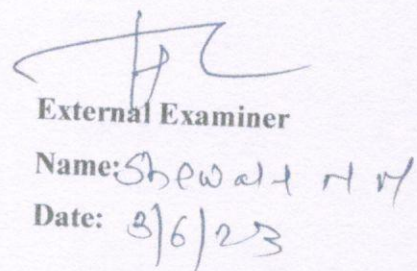 External Examiner
Name: Shewale H M
Date: 3/6/23